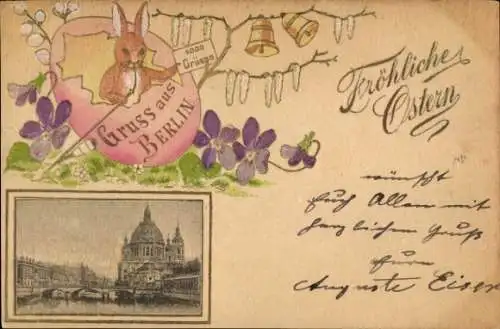 1000
Grüsse
Gruss aus
BERLIN
Fröhliche
Ostern
wünscht
Euch Allen mit
herzlichem Gruß
Eure
Auguste Eiser